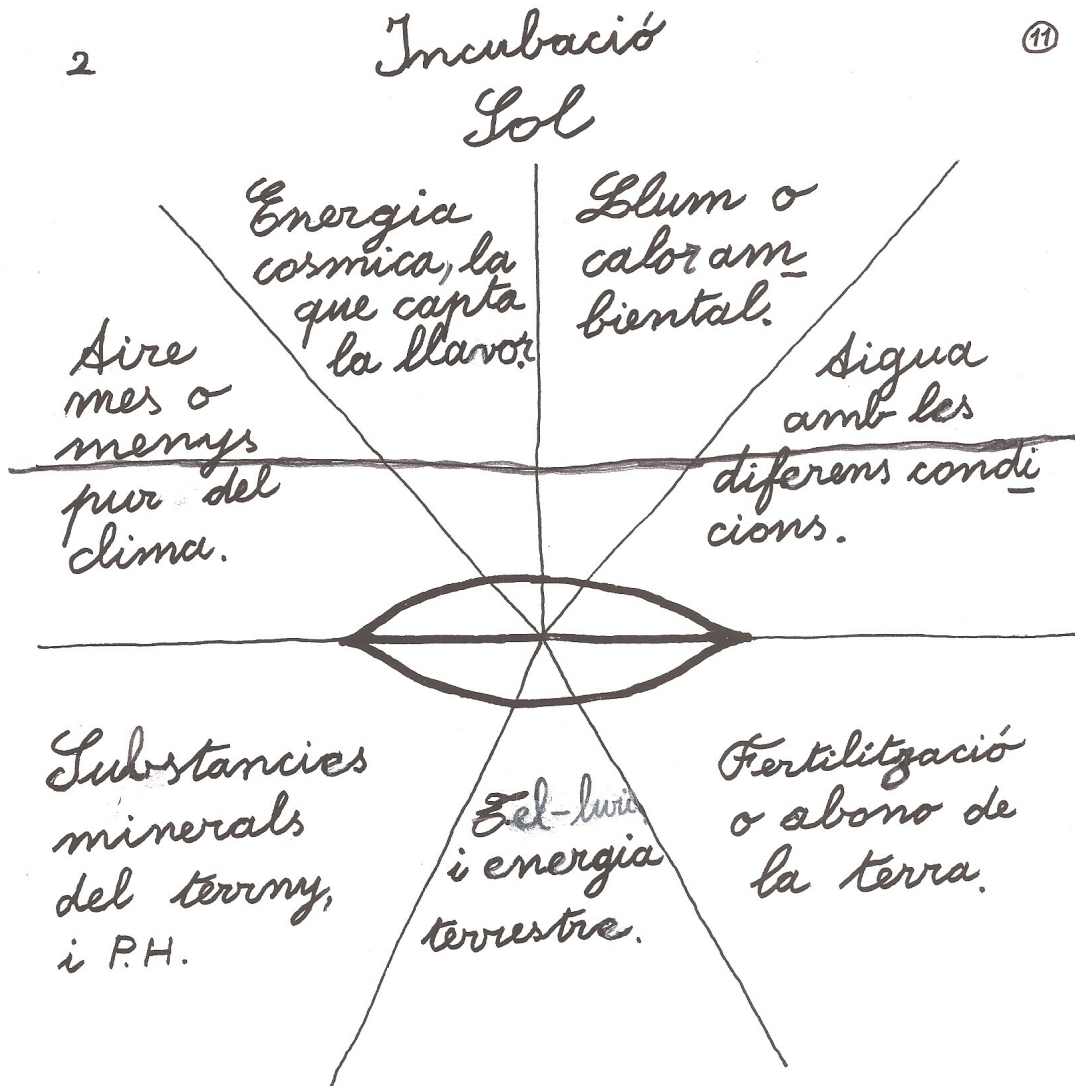 2
Incubació
11
Sol
Energia
cosmica, la
que capta
la llavor.
Llum o
calor am-
biental.
Aire
mes o
menys
pur del
clima.
Aigua
amb les
diferens condi-
cions.
Substancies
minerals
del terrny,
i P.H.
Tel-luri
i energia
terrestre.
Fertilització
o abono de
la terra.